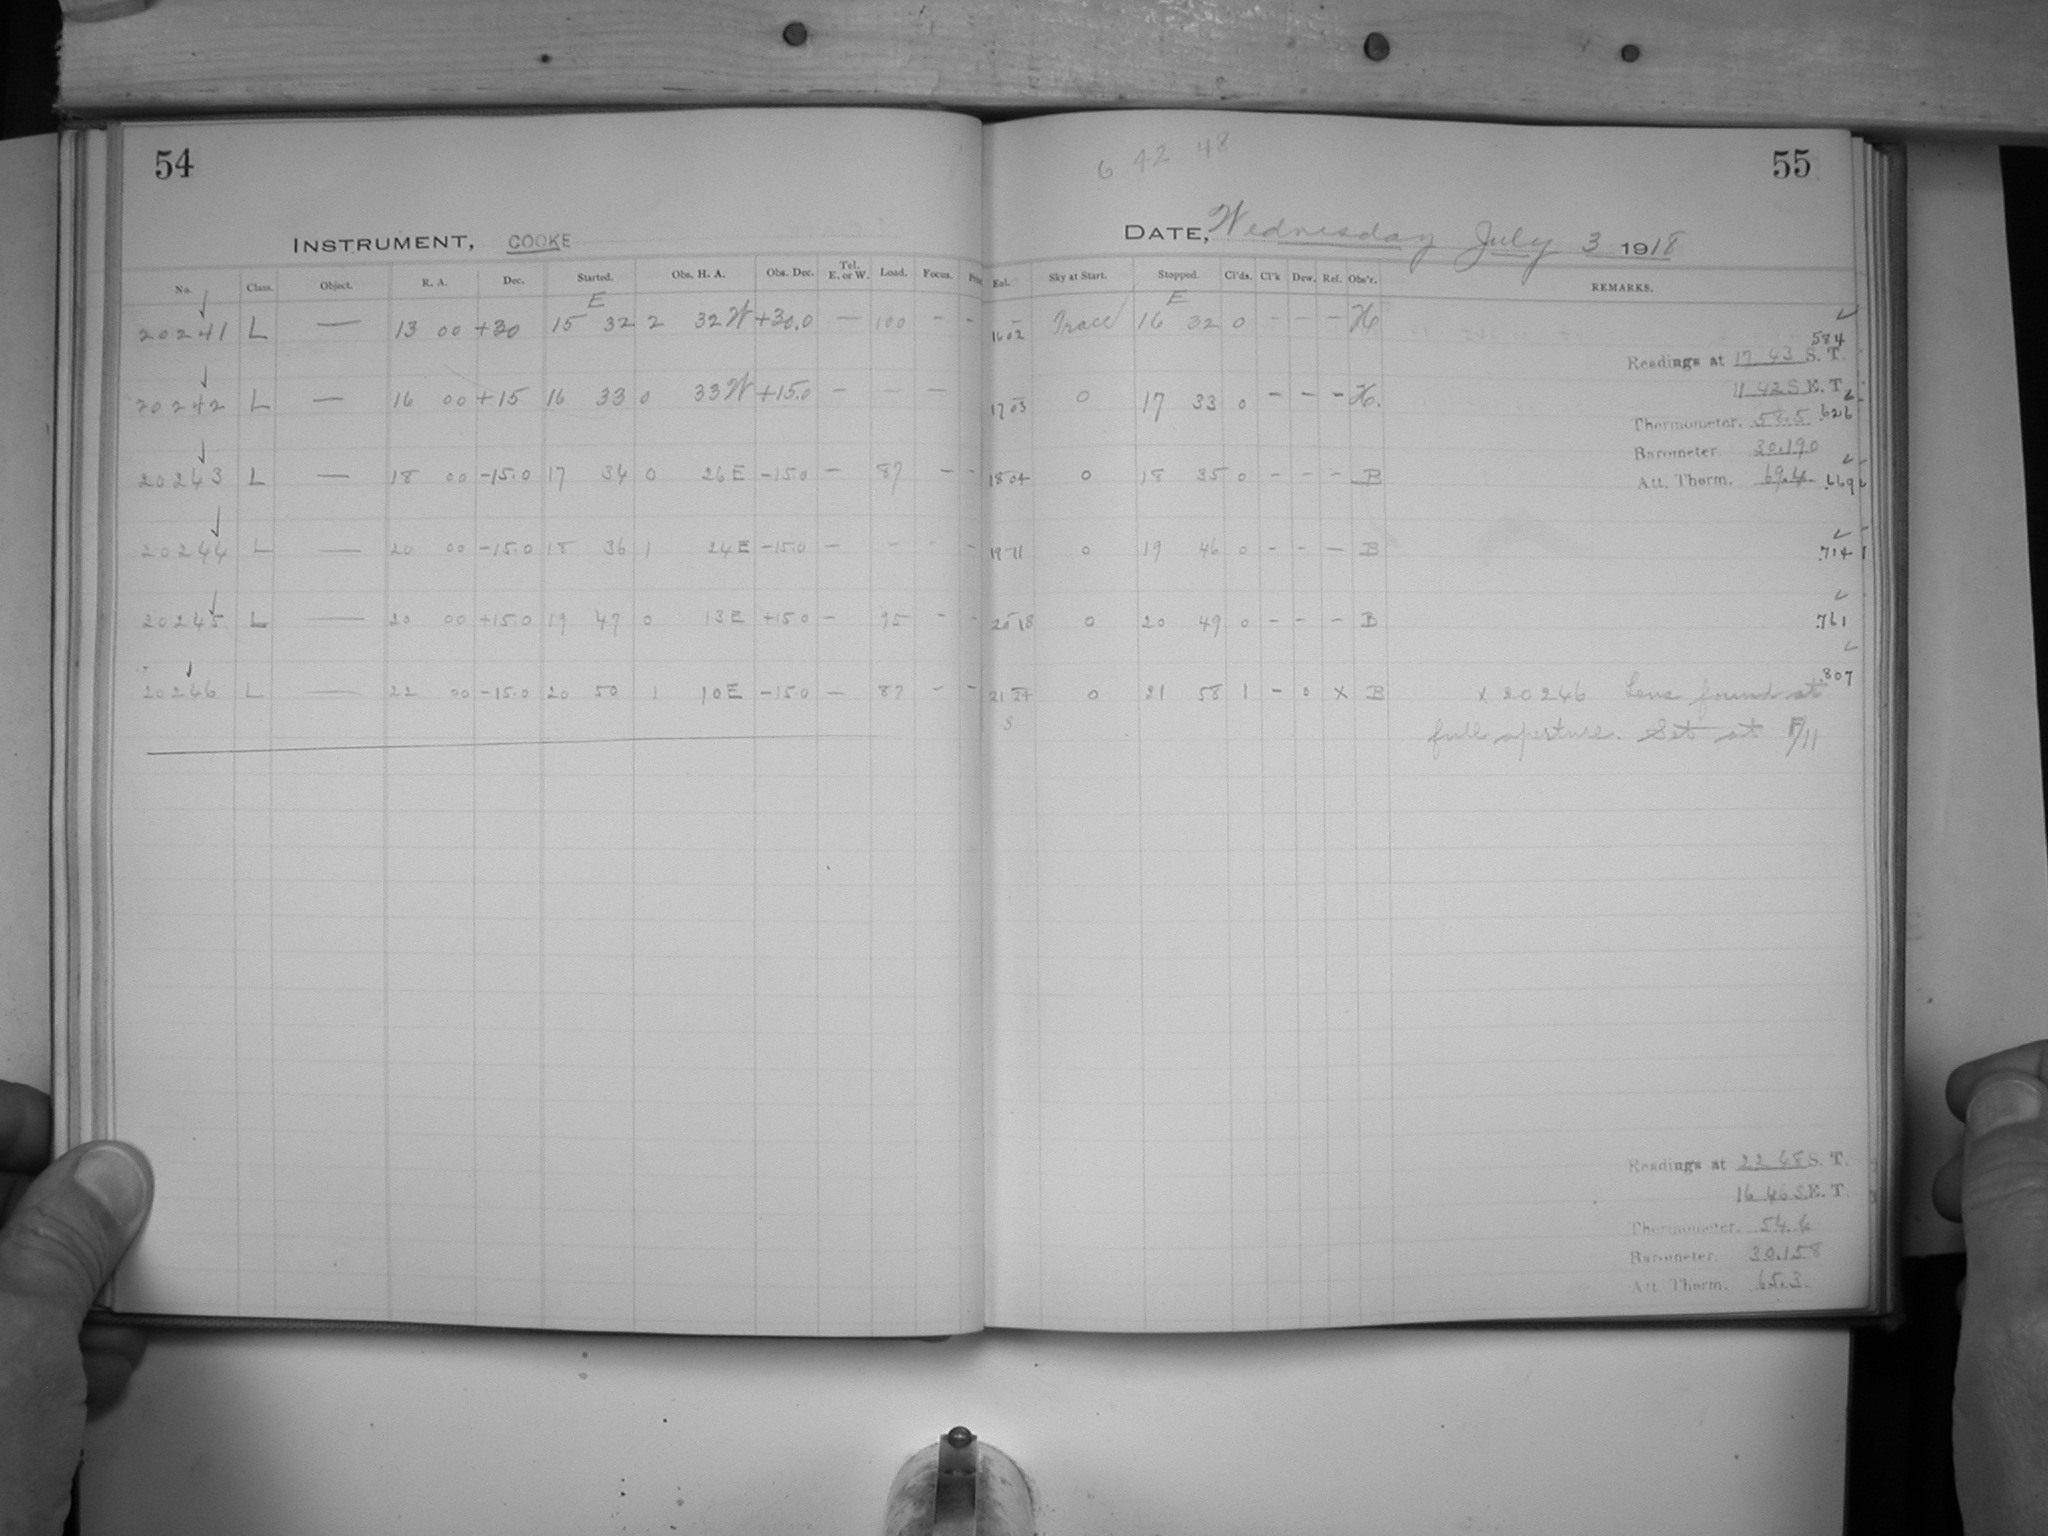 54
INSTRUMENT, COOKE
No. Class. Object. R. A. Dec. Started. Obs. H. A. Obs. Dec. Tel. E. or W. Load. Focus.
E
20241 L — 13 00 +30 15 32 2 32 W +30.0 — 100 - -
20242 L — 16 00 +15 16 33 0 33 W +15.0 - — —
20243 L — 18 00 -15.0 17 34 0 26 E -15.0 — 87 - -
20244 L — 20 00 -15.0 18 36 1 24 E -15.0 — - - -
20245 L — 20 00 +15.0 19 47 0 13 E +15.0 — 95 - -
20246 L — 22 00 -15.0 20 50 1 10 E -15.0 — 87 - -
6 42 48
55
DATE, Wednesday July 3 1918
Sky at Start. Stopped. Cl'ds. Cl'k Dew. Ref. Obs'r. REMARKS.
E
16 02 Trace 16 32 0 - - - H.
584
Readings at 17 43 S. T.
11 42 S E. T.
17 03 0 17 33 0 - - - H.
Thermometer. 58.5 .626
Barometer. 30.190
18 04 0 18 35 0 - - - B
Att. Therm. 69.4 .669
19 11 0 19 46 0 - - — B .714
20 18 0 20 49 0 - - - B .761
.807
21 24 0 21 58 1 - 0 x B x 20246 Lens found at
full aperture. Set at F/11
Readings at 22 48 S. T.
16 46 S E. T.
Thermometer. 54.6
Barometer. 30.158
Att. Therm. 65.3